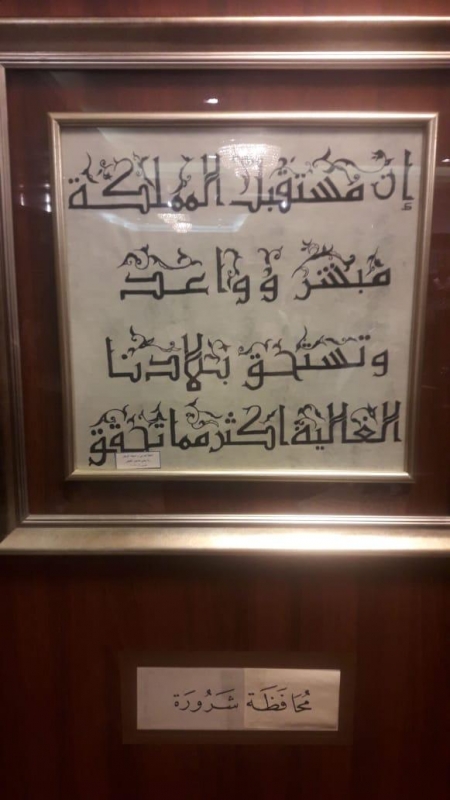 إن مستقبل المملكة
مُبشر وواعد
وتستحق بلادنا
الغالية أكثر مما تحقق
مُحَافَظَة شَرُورَة